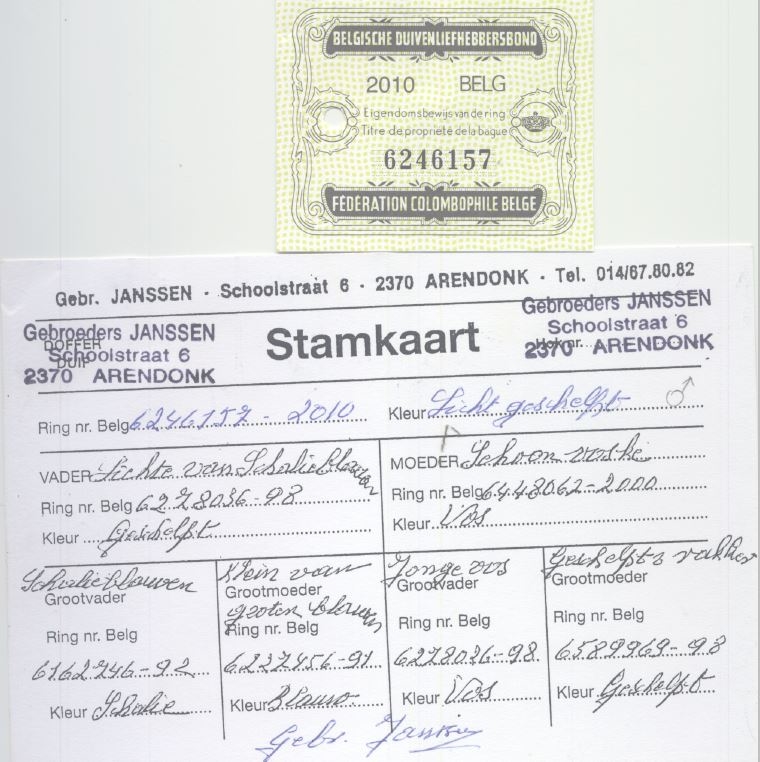 BELGISCHE DUIVENLIEFHEBBERSBOND
2010 BELG
Eigendomsbewijs van de ring
Titre de propriété de la bague
6246157
FÉDÉRATION COLOMBOPHILE BELGE
Gebr. JANSSEN - Schoolstraat 6 - 2370 ARENDONK - Tel. 014/67.80.82
Gebroeders JANSSEN
Schoolstraat 6
2370 ARENDONK
DOFFER
DUIF
Stamkaart
Gebroeders JANSSEN
Schoolstraat 6
2370 ARENDONK
Hok nr.
Ring nr. Belg 6246157 - 2010 Kleur Licht geschelft ♂
VADER Lichte van Schalieblauwen
Ring nr. Belg 6278036-98
Kleur Geschelft
MOEDER Schoon voske
Ring nr. Belg 6448062-2000
Kleur Vos
Schalieblauwen
Grootvader
Ring nr. Belg
6162746-92
Kleur Schalie
Klein van
Grootmoeder
groten blauwen
Ring nr. Belg
6237456-91
Kleur Blauw
Jonge vos
Grootvader
Ring nr. Belg
6278026-98
Kleur Vos
Geschelfts
Grootmoeder
Ring nr. Belg
6589969-98
Kleur Geschelft
Gebr. Janssen